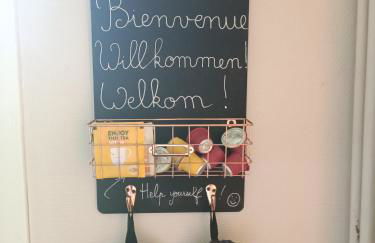 Bienvenue
Willkommen!
Welkom!
ENJOY
THIS TEA
Help yourself!